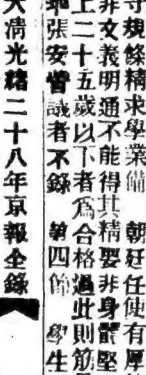 守規條精求學業備　朝廷任使有厚
非文義明通不能得其精要非身體堅
上二十五歲以下者爲合格過此則筋
張安嘗議者不錄　第四節　學生
大清光緒二十八年京報全錄